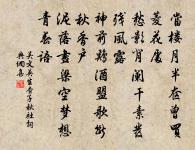 當樓月半奩曾買
菱花處
愁影背闌干素髮
殘風露
神前鷄酒盟歌斷
秋香户
泥落畫梁空夢想
青春語
吳文英生查子秋社詞